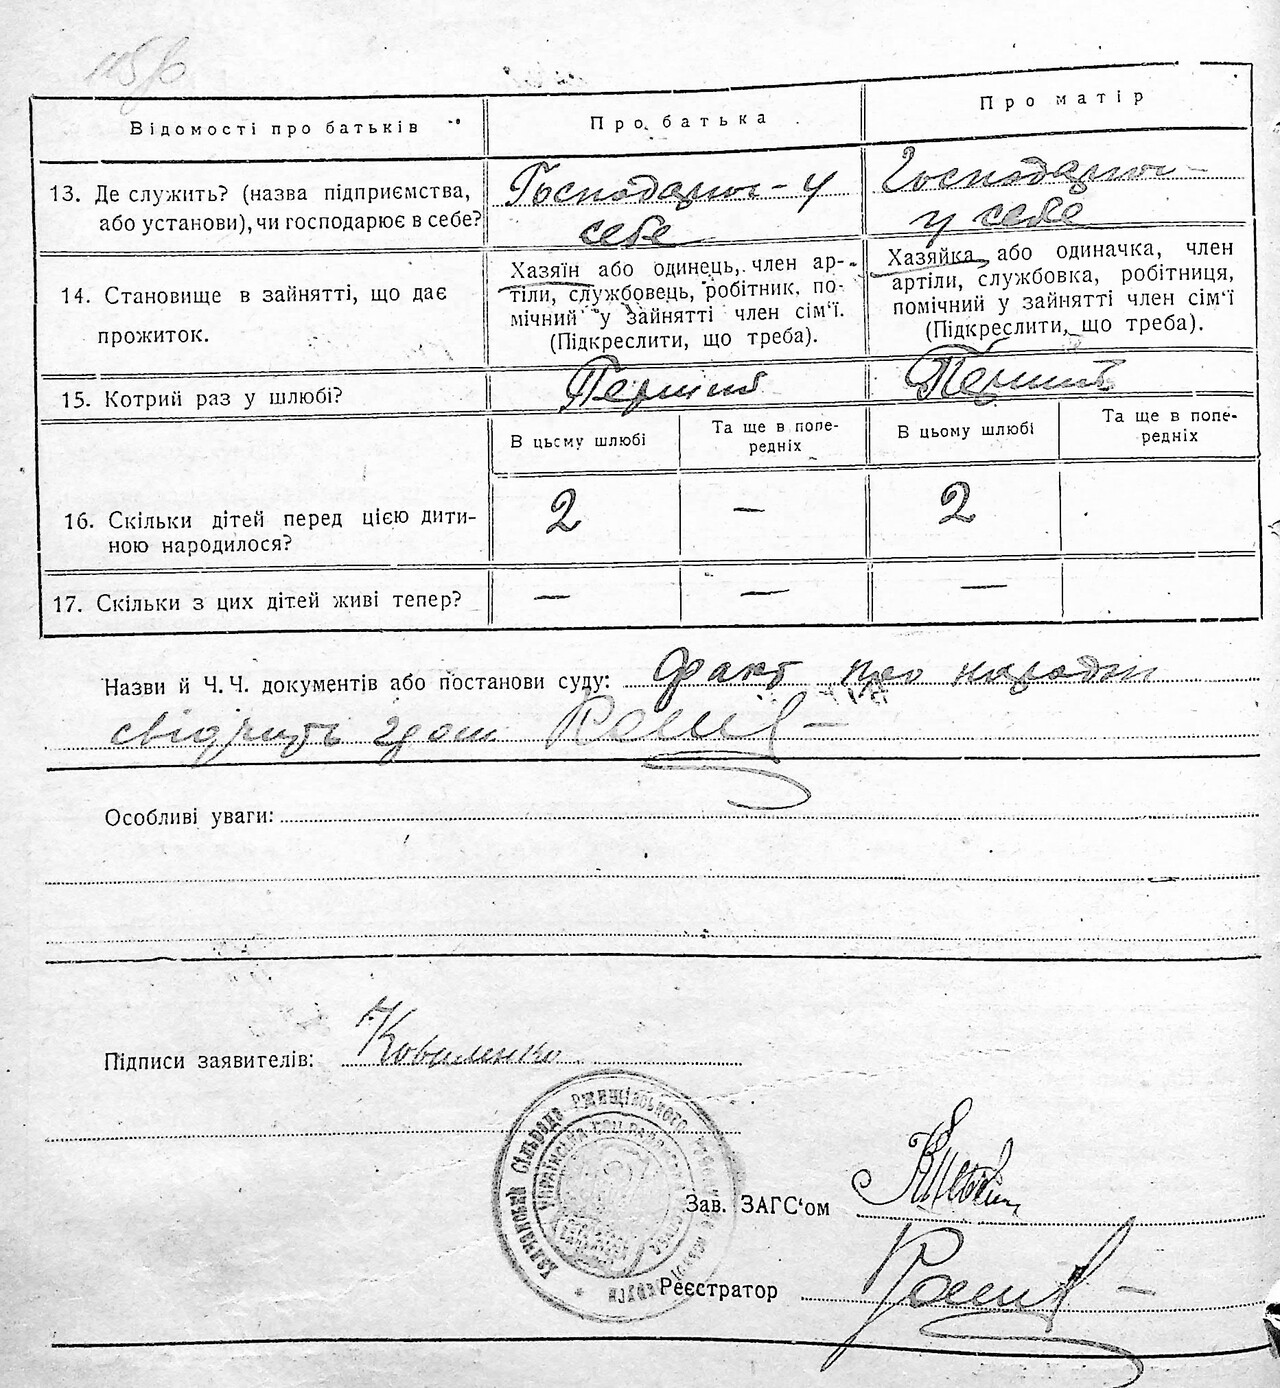 Відомості про батьків
Про батька
Про матір
13. Де служить? (назва підприємства,
або установи), чи господарює в себе?
Господарює - у
себе
Господарює -
у себе
14. Становище в зайнятті, що дає
прожиток.
Хазяїн або одинець, член ар-
тіли, службовець, робітник, по-
мічний у зайнятті член сім'ї.
(Підкреслити, що треба).
Хазяйка, або одиначка, член
артіли, службовка, робітниця,
помічний у зайнятті член сім'ї
(Підкреслити, що треба).
15. Котрий раз у шлюбі?
Перший
Перший
В цьому шлюбі
Та ще в попе-
редніх
В цьому шлюбі
Та ще в попе-
редніх
16. Скільки дітей перед цією дити-
ною народилося?
2
—
2
17. Скільки з цих дітей живі тепер?
—
—
—
Назви й Ч. Ч. документів або постанови суду: факт про народж
свідчить
Особливі уваги:
Підписи заявителів: Коваленко
Сільрада Ржищівського
Українська
Зав. ЗАГС'ом
Реєстратор